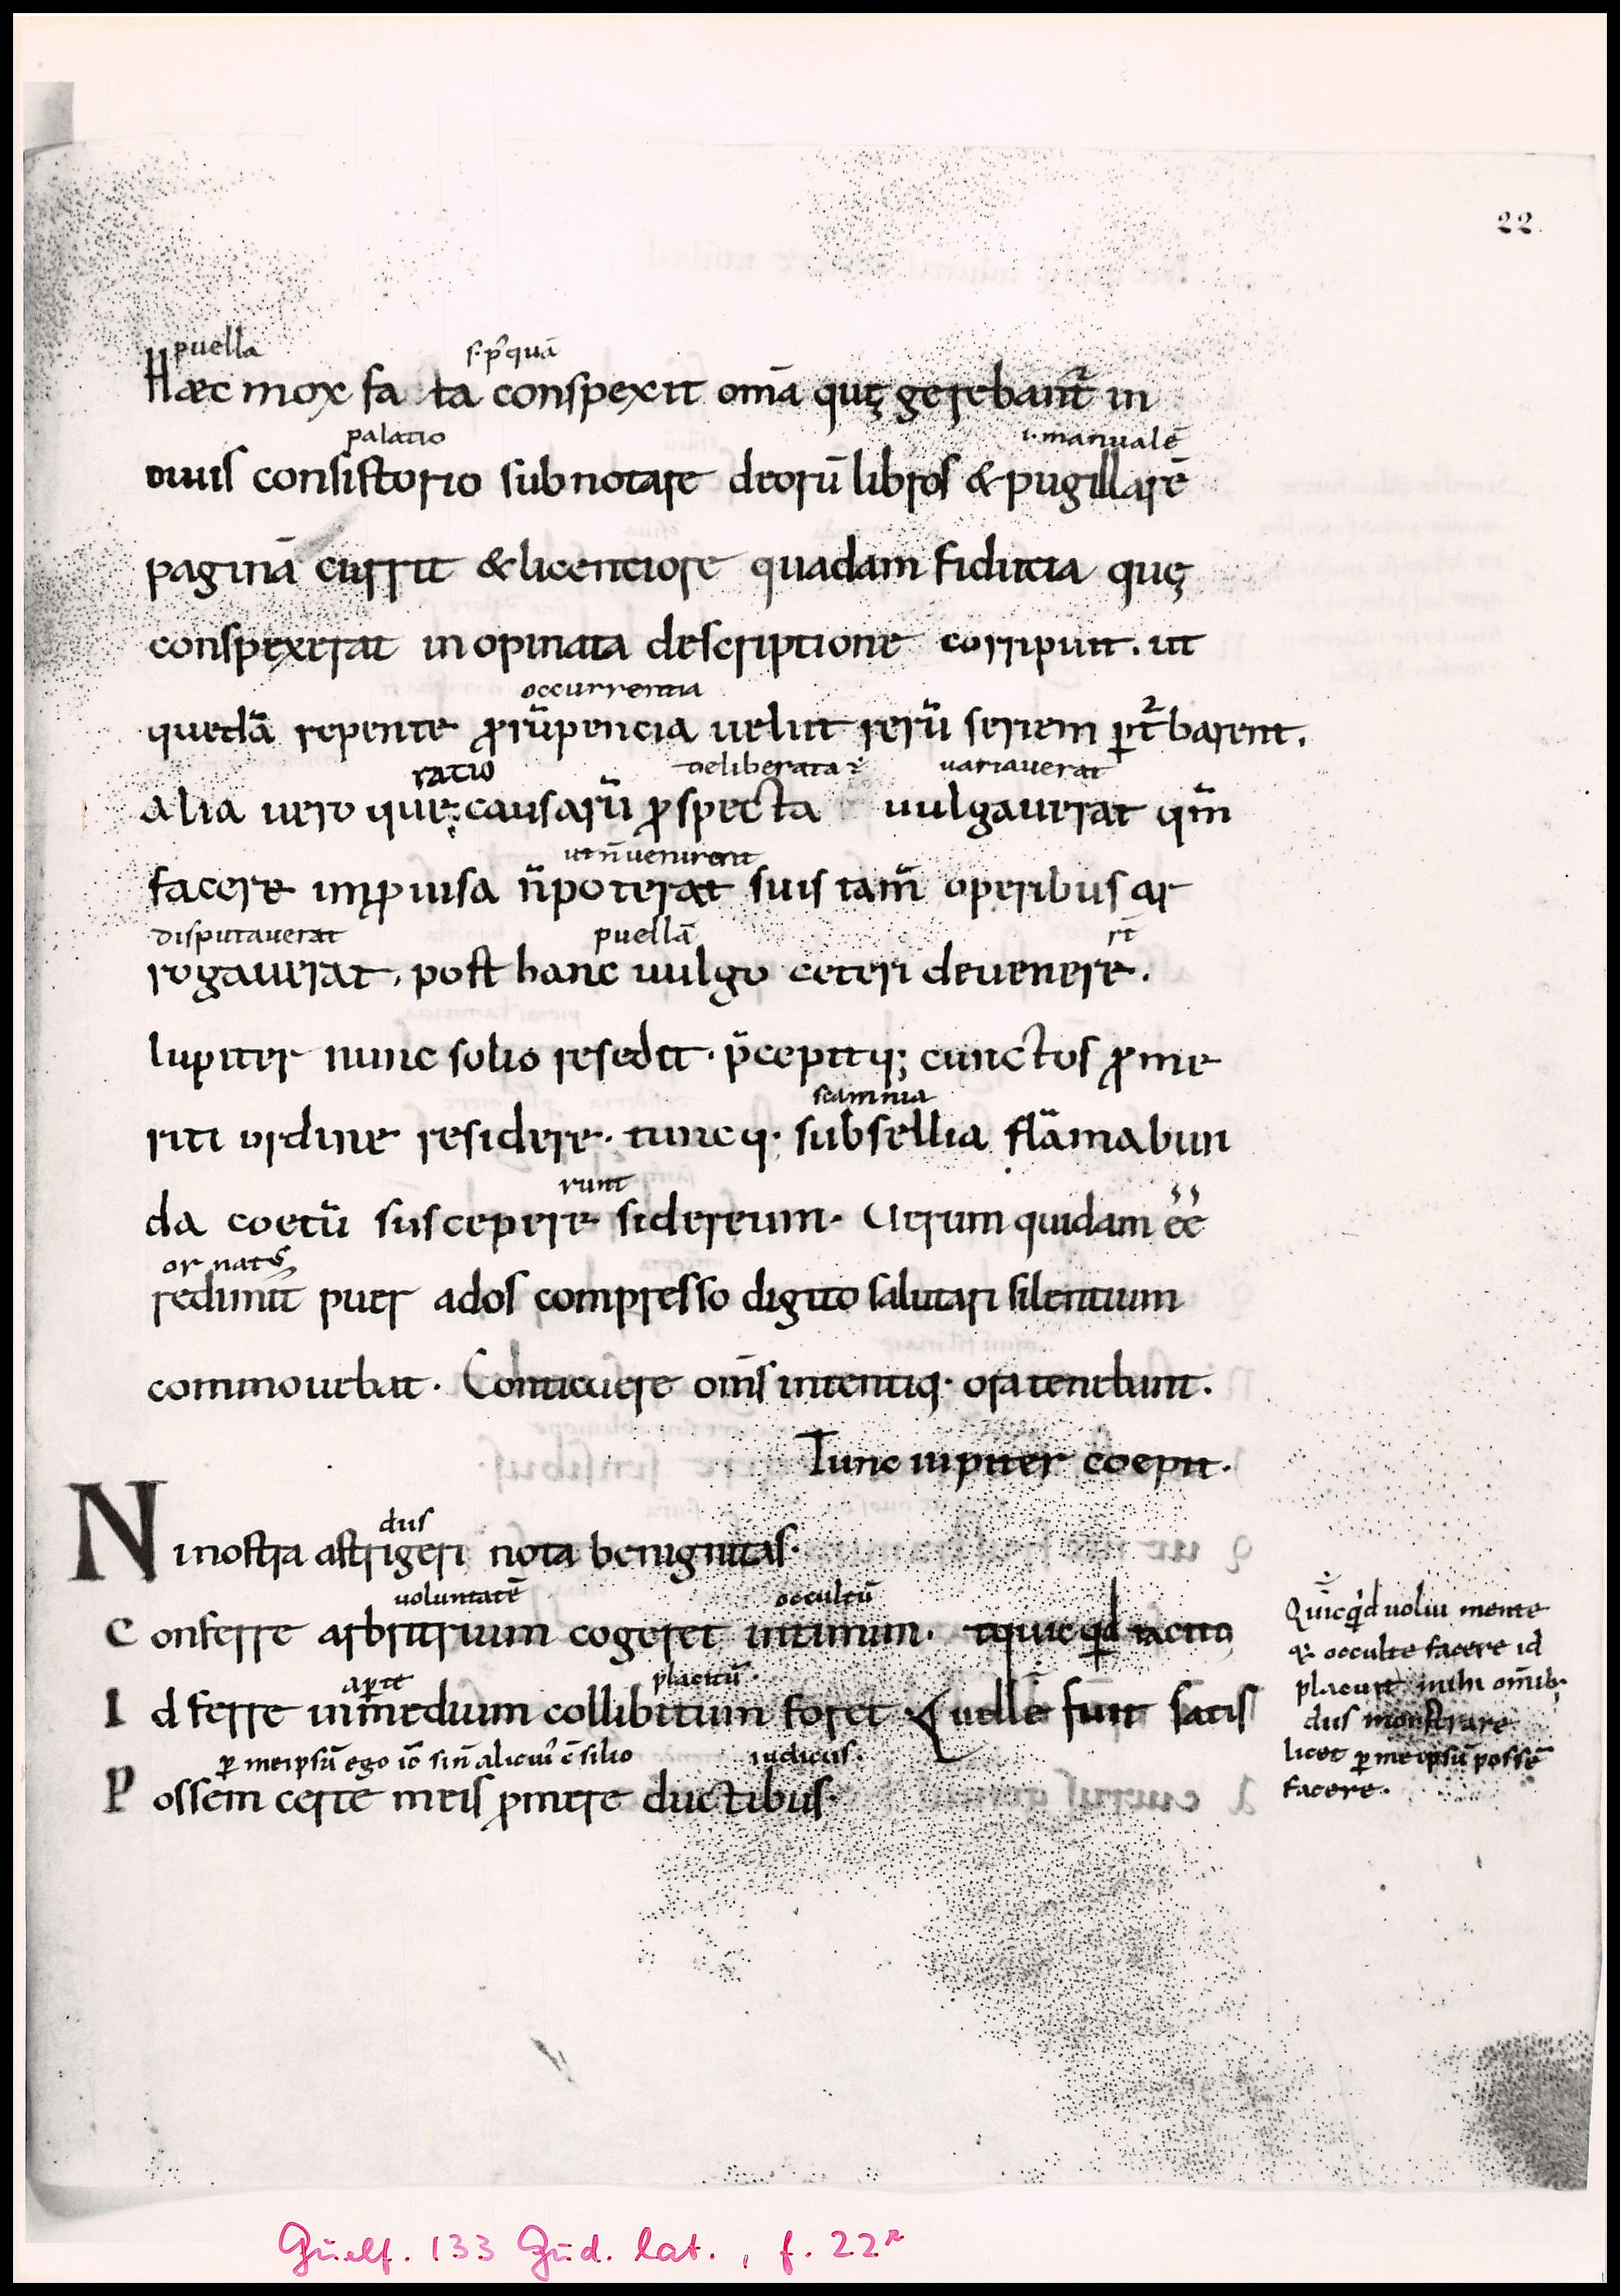 22
puella s·p̄quā
Hæc mox fa ta conspexit om̄a quę gerebant᷑ in
palatio ·i·manualē
ouis consistorio subnotare deorū libros & pugillarē
paginā currit & licenciore quadam fiducia quę
conspexerat inopinata descriptione corripuit. ut
occurrentia
quedā repente ꝓrūpencia uelut rerū seriem ꝑt᷑barent.
ratio deliberata variaverat
alia uero quę causarū ꝓspecta uulgauerat qm̄
ut n̄ venirent
facere imꝓuisa n̄ poterat suis tam̄ operibus ar
disputaverat puellā rt̄
rogauerat, post hanc uulgo ceteri deuenere.
Iupiter nunc solio resedit. p̄cepitq; cunctos ꝓme
scamnia
riti ordine residere. tuncq; subsellia flāmabun
runt
da coetū suscepere sidereum. Uerum quidam éé
ornatꝰ
redimit puer ados compresso digito salutari silentium
commouebat. Conticuere om̄s intentiq; ora tenebunt.
Tunc iupiter coepit.
dus
Ni nostra astrigeri nota benignitas.
voluntatē occultū
Conferre arbitrium cogeret intimum.
aꝑte placitū
Id ferre inmedium collibitum foret uelle fuit satis
ꝑ meipsū ego iō sin̄ alicui᷒ c̄silio iudiciis
Possem certe meis ꝓmere ductibus.
Quicq̇d volui mente
occulte facere id
placuit mihi om̄ib;
dus monstrare
licet ꝑ me ipsū possē
facere.
Guelf. 133 Gud. lat., f. 22r